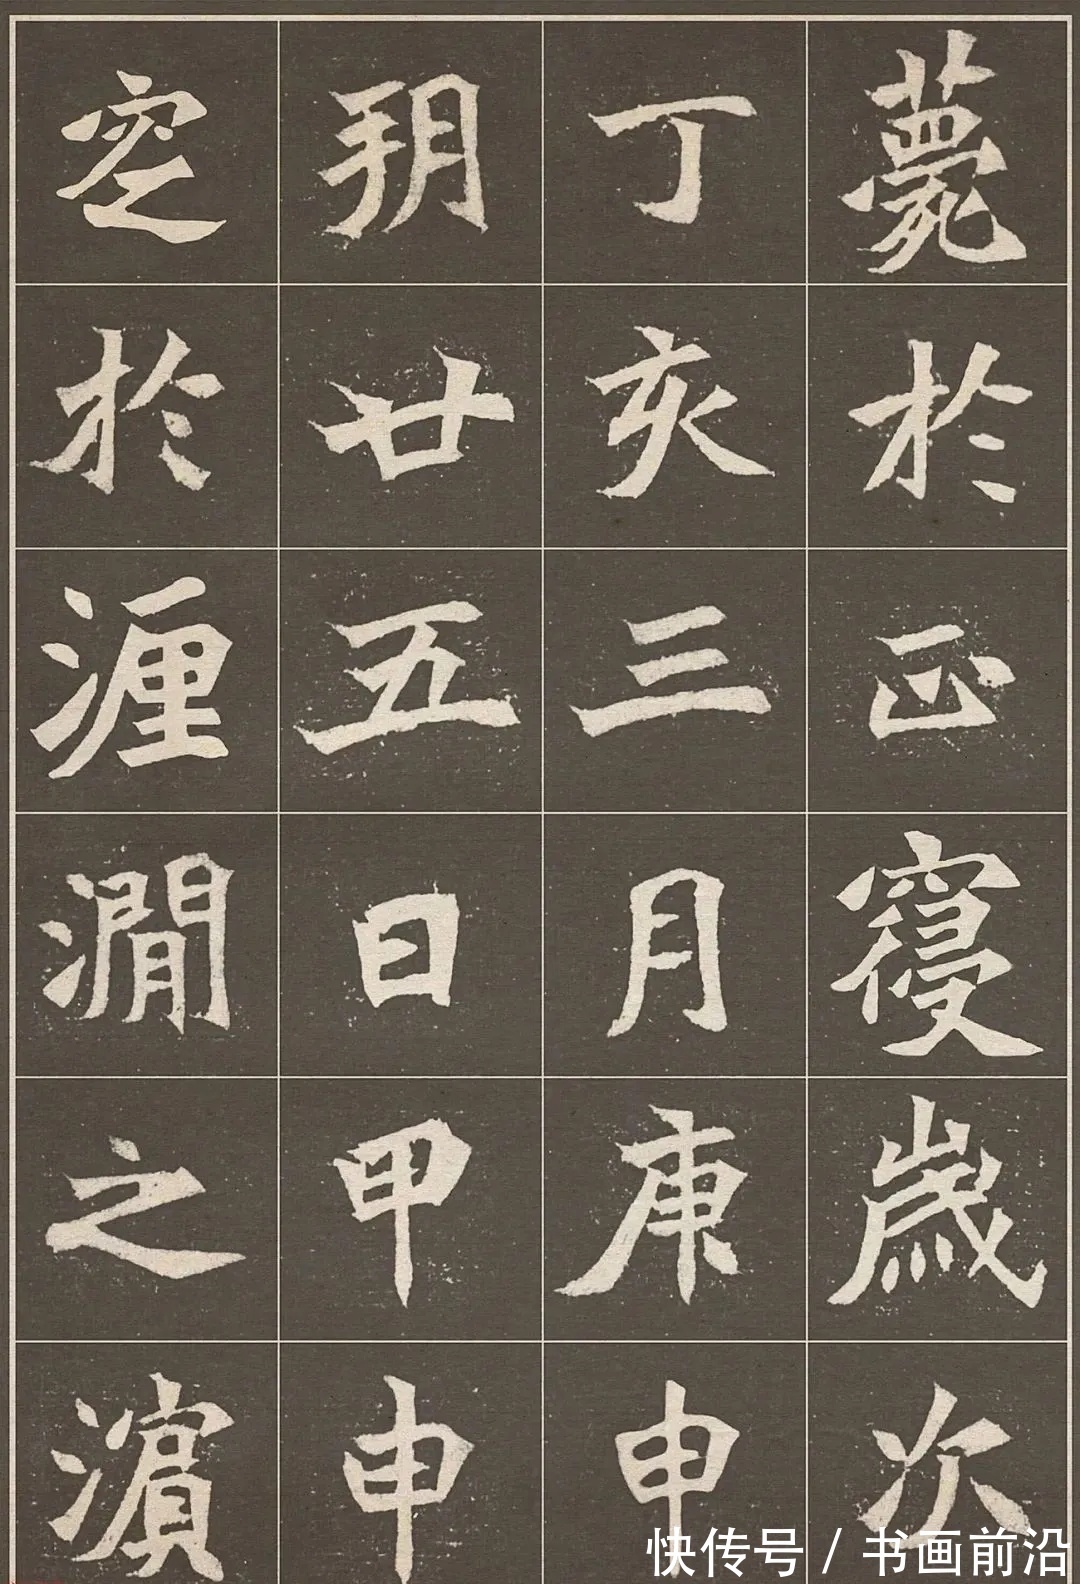 薨於正寢歲次
丁亥三月庚申
朔廿五日甲申
窆於瀍澗之濱
快传号 / 书画前沿